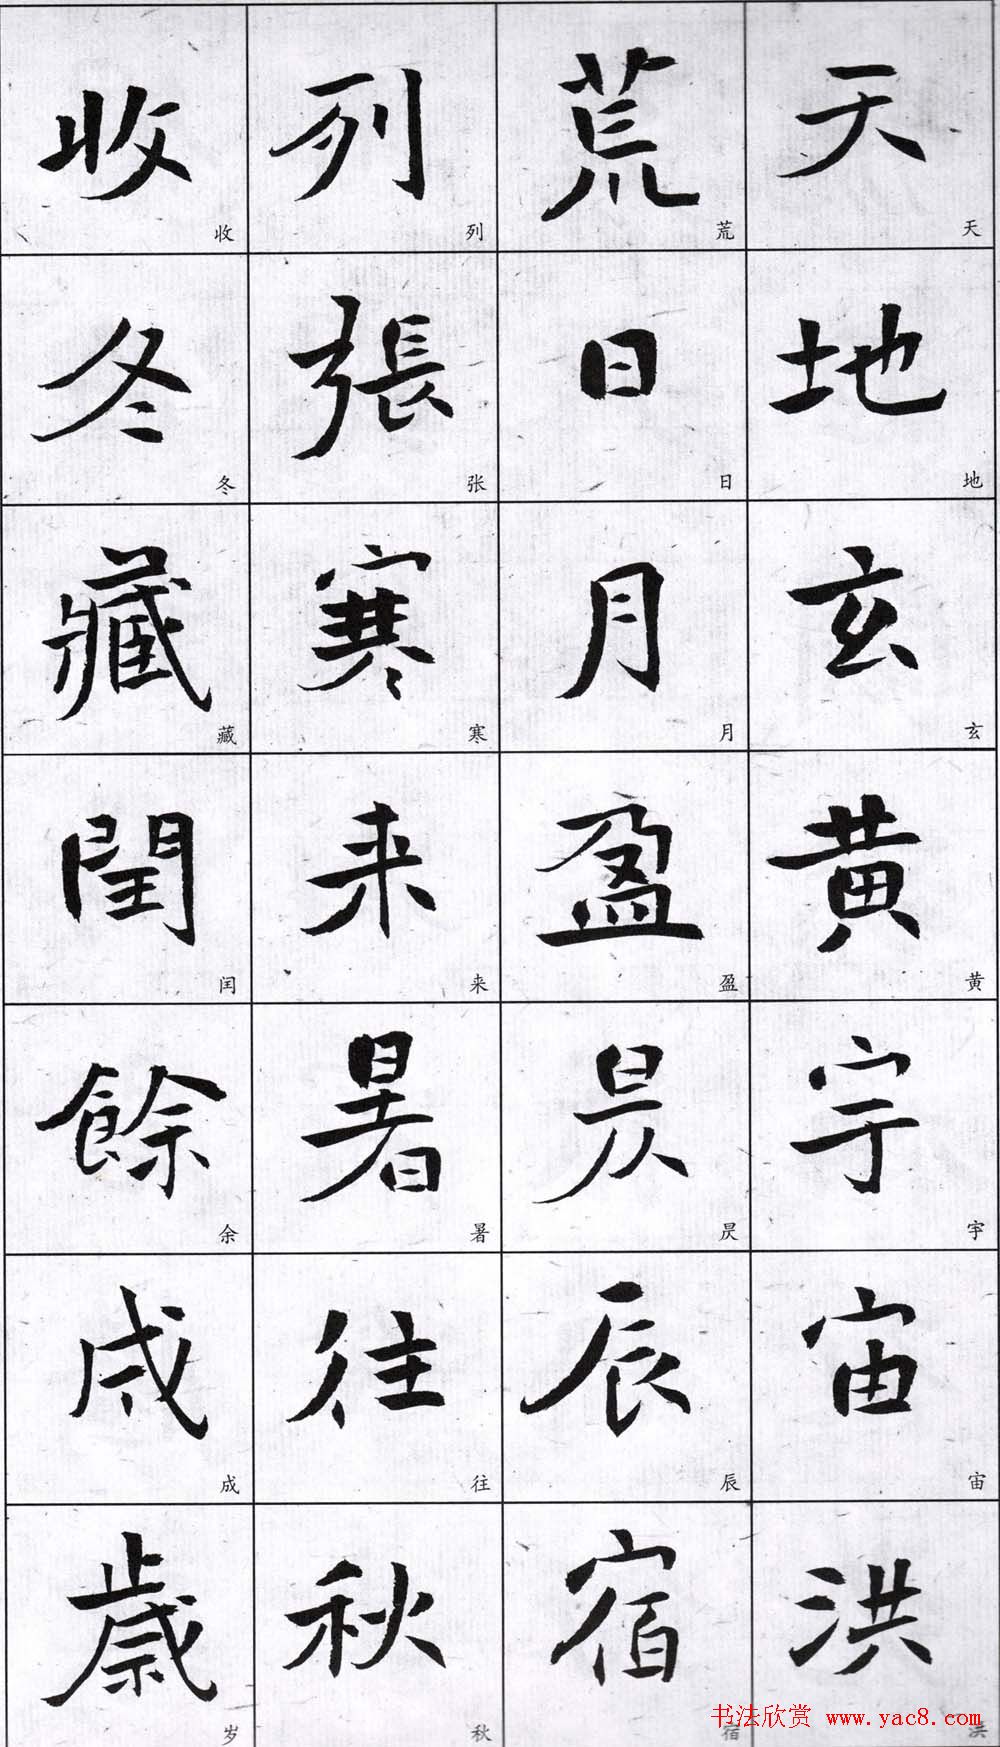 天地玄黄宇宙洪
天地玄黄宇宙洪
荒日月盈昃辰宿
荒日月盈昃辰宿
列張寒来暑往秋
列张寒来暑往秋
收冬藏閏餘成歳
收冬藏闰余成岁
书法欣赏 www.yac8.com